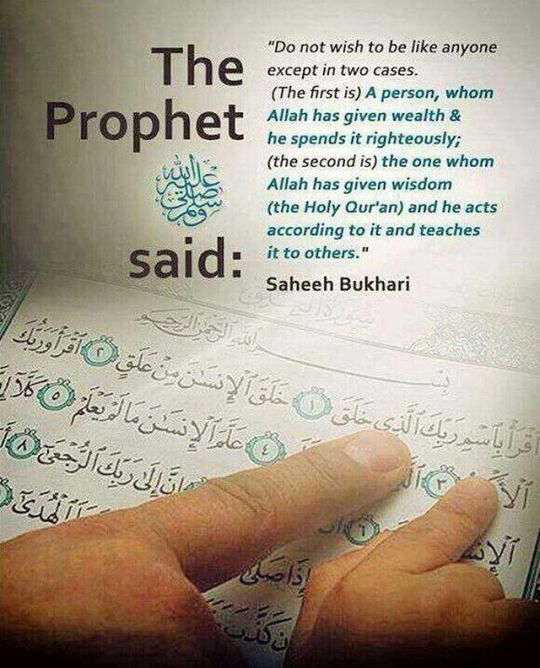 The
Prophet
صلى الله عليه وسلم
said:
"Do not wish to be like anyone
except in two cases.
(The first is) A person, whom
Allah has given wealth &
he spends it righteously;
(the second is) the one whom
Allah has given wisdom
(the Holy Qur'an) and he acts
according to it and teaches
it to others."
Saheeh Bukhari
بِسْمِ ٱللَّهِ ٱلرَّحْمَٰنِ ٱلرَّحِيمِ
ٱقْرَأْ بِٱسْمِ رَبِّكَ ٱلَّذِى خَلَقَ ١ خَلَقَ ٱلْإِنسَٰنَ مِنْ عَلَقٍ ٢ ٱقْرَأْ وَرَبُّكَ
٣ ٤ عَلَّمَ ٱلْإِنسَٰنَ مَا لَمْ يَعْلَمْ ٥ كَلَّآ
٦ إِنَّ إِلَىٰ رَبِّكَ ٱلرُّجْعَىٰٓ ٨
إِذَا صَلَّىٰٓ ٱلْهُدَىٰٓ
كَذَّبَ